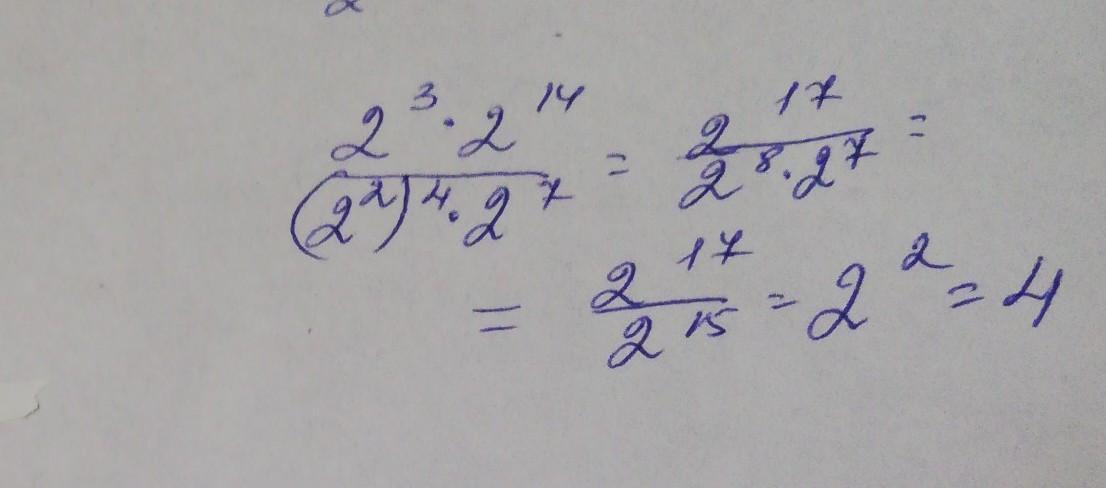 2³·2¹⁴/(2²)⁴·2⁷ = 2¹⁷/2⁸·2⁷ =
= 2¹⁷/2¹⁵ = 2² = 4